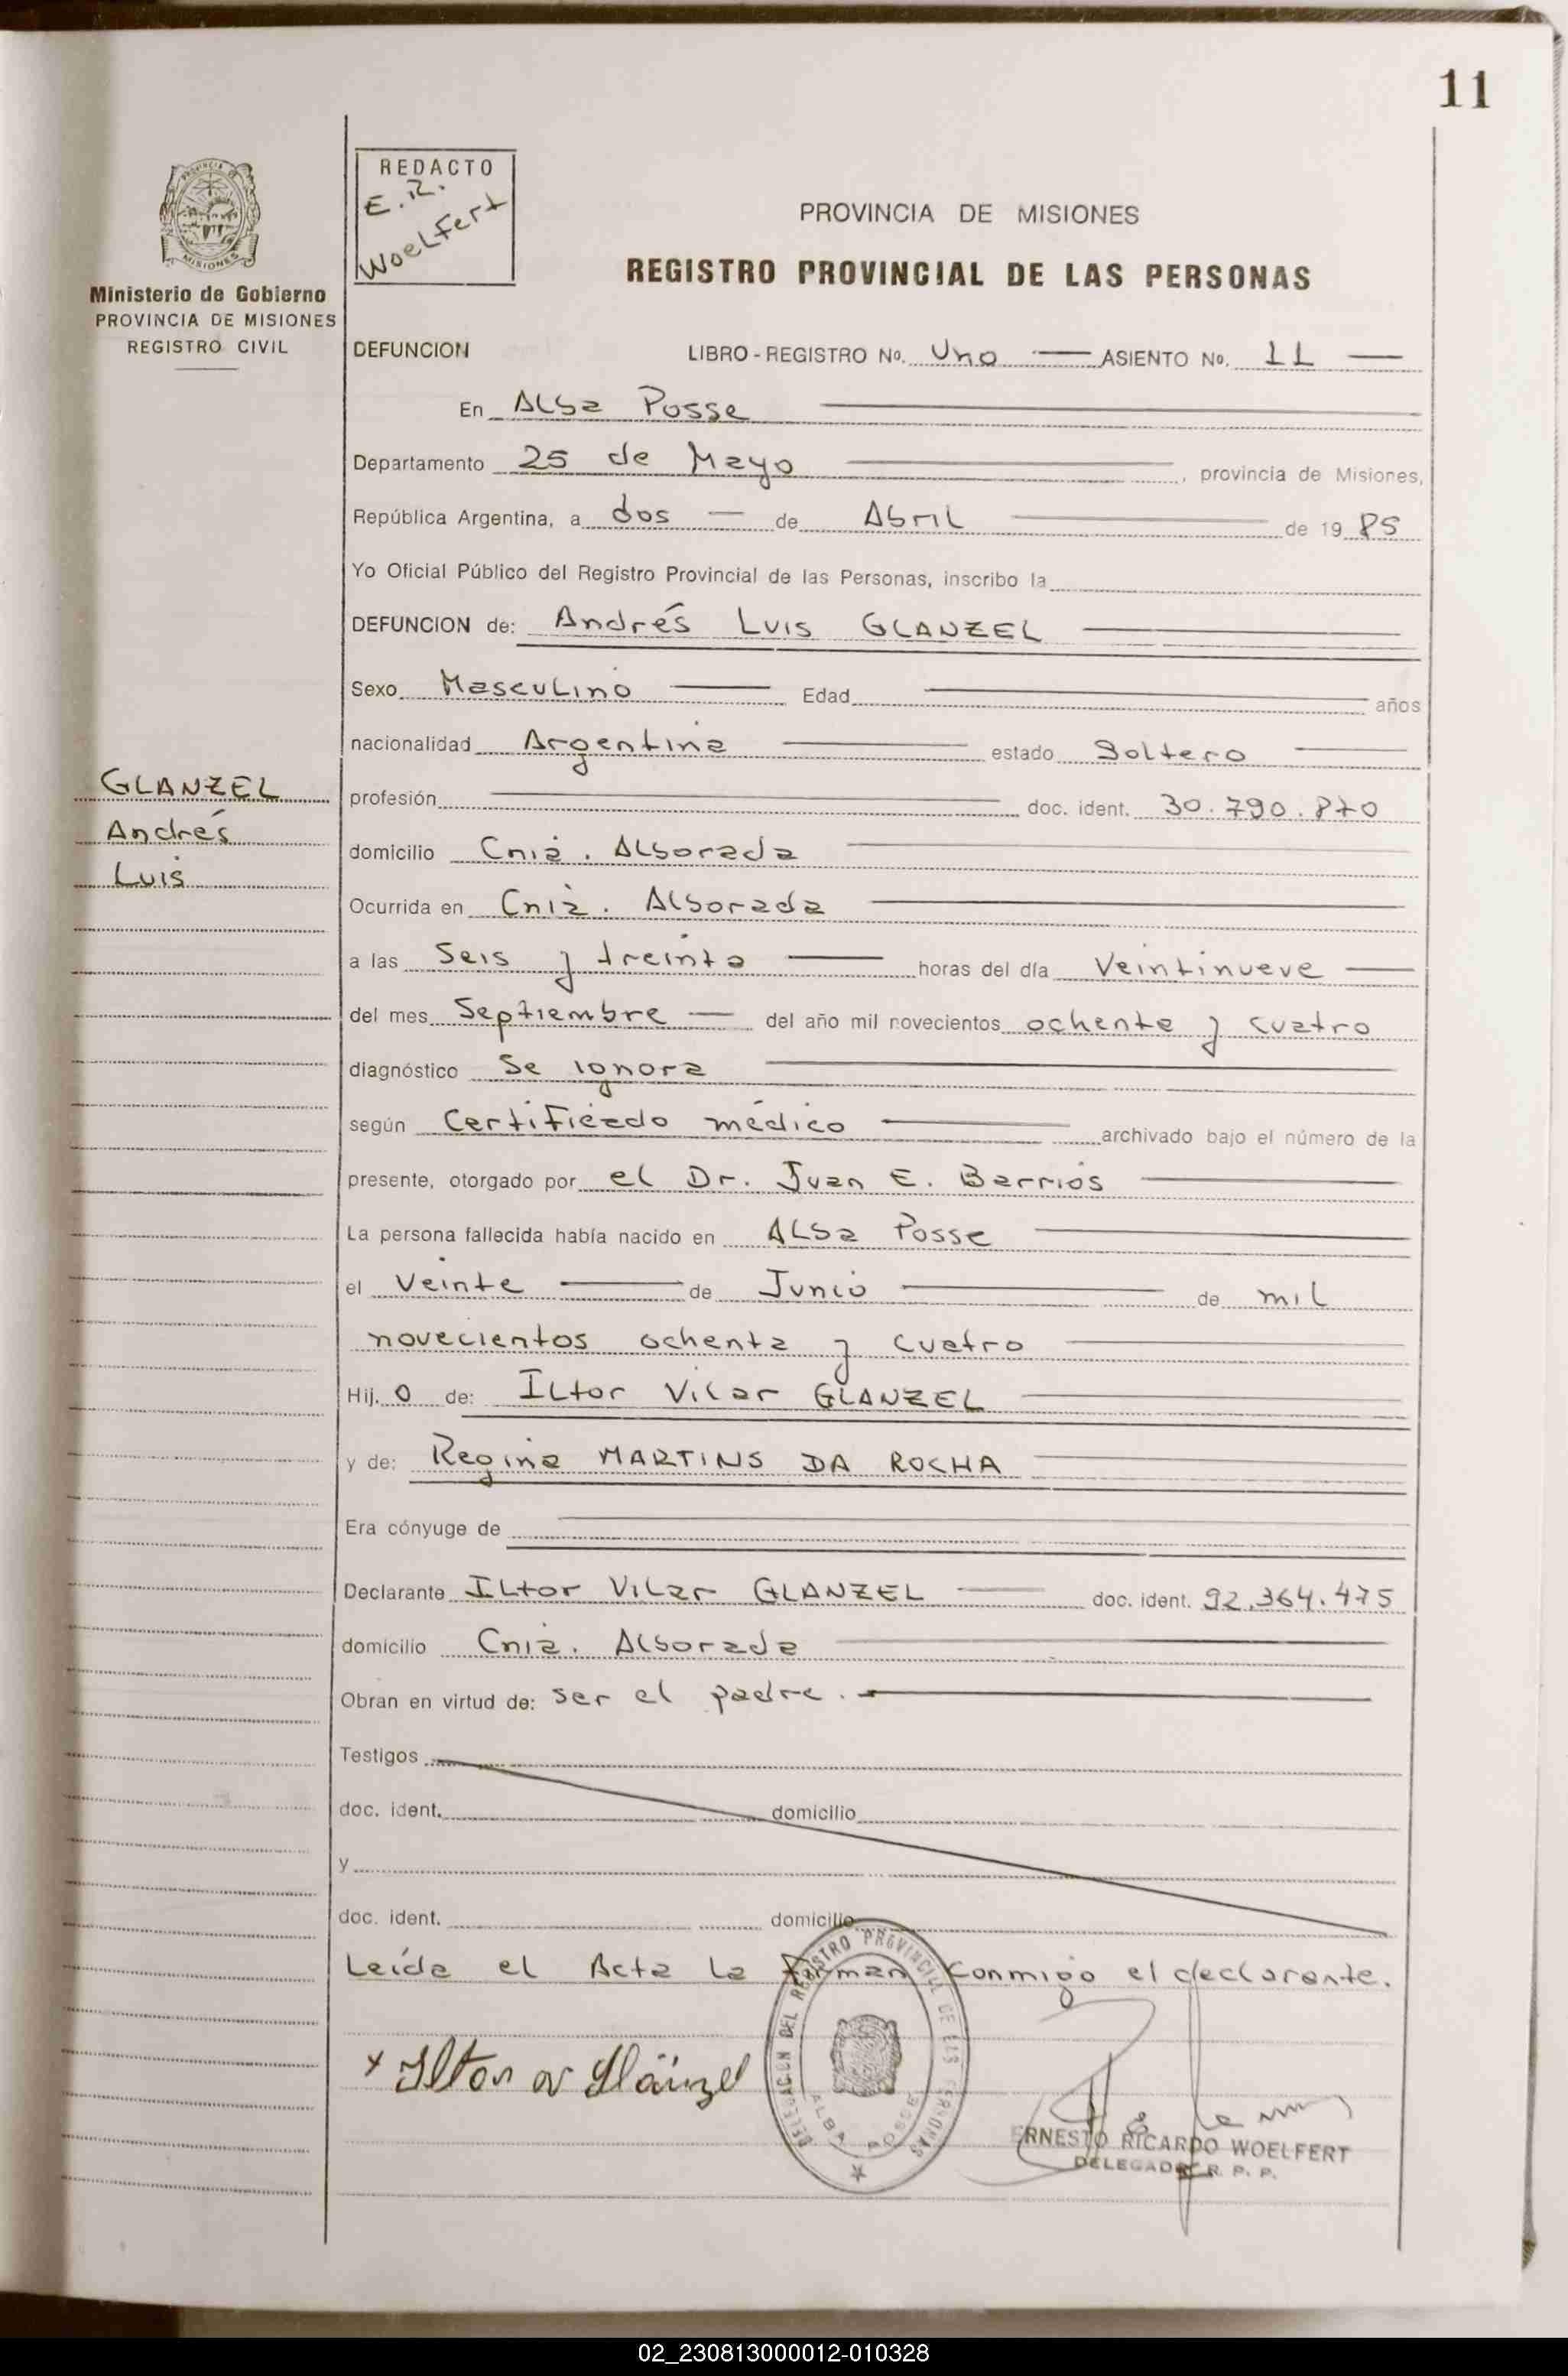 11
REDACTO
E.R.
Woelfert
PROVINCIA DE MISIONES
REGISTRO PROVINCIAL DE LAS PERSONAS
MISIONES
Ministerio de Gobierno
PROVINCIA DE MISIONES
REGISTRO CIVIL
DEFUNCION LIBRO - REGISTRO Nº. Uno ASIENTO Nº. 11
En Alba Posse
Departamento 25 de Mayo, provincia de Misiones,
República Argentina, a dos de Abril de 19 85
Yo Oficial Público del Registro Provincial de las Personas, inscribo la
DEFUNCION de: Andrés Luis GLANZEL
Sexo Masculino Edad años
nacionalidad Argentina estado Soltero
GLANZEL
Andrés
Luis
profesión doc. ident. 30.790.870
domicilio Cnia. Alborada
Ocurrida en Cnia. Alborada
a las Seis y treinta horas del día Veintinueve
del mes Septiembre del año mil novecientos ochenta y cuatro
diagnóstico Se ignora
según Certificado médico archivado bajo el número de la
presente, otorgado por el Dr. Juan E. Barrios
La persona fallecida había nacido en Alba Posse
el Veinte de Junio de mil
novecientos ochenta y cuatro
Hij. o de: Iltor Vilar GLANZEL
y de: Regina MARTINS DA ROCHA
Era cónyuge de
Declarante Iltor Vilar GLANZEL doc. ident. 92.364.475
domicilio Cnia. Alborada
Obran en virtud de: ser el padre.
Testigos
doc. ident. domicilio
y
doc. ident. domicilio
Leída el Acta la Firman conmigo el declarante.
DELEGACION DEL REGISTRO PROVINCIAL DE LAS PERSONAS
ALBA POSSE
x Iltor v Glänzel
ERNESTO RICARDO WOELFERT
DELEGADO R. P. P.
02_230813000012-010328